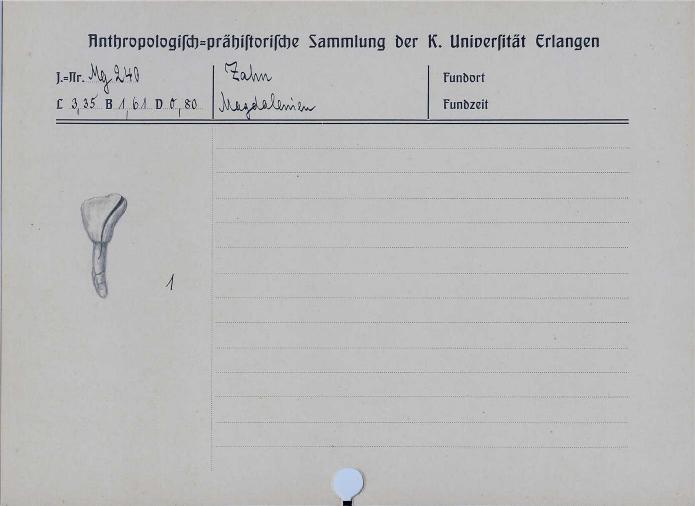 Anthropologisch=prähistorische Sammlung der K. Universität Erlangen
J.=Nr. Mg 240 Zahn Fundort
L 3,35 B 1,61 D 0,80 Magdalenien Fundzeit
1